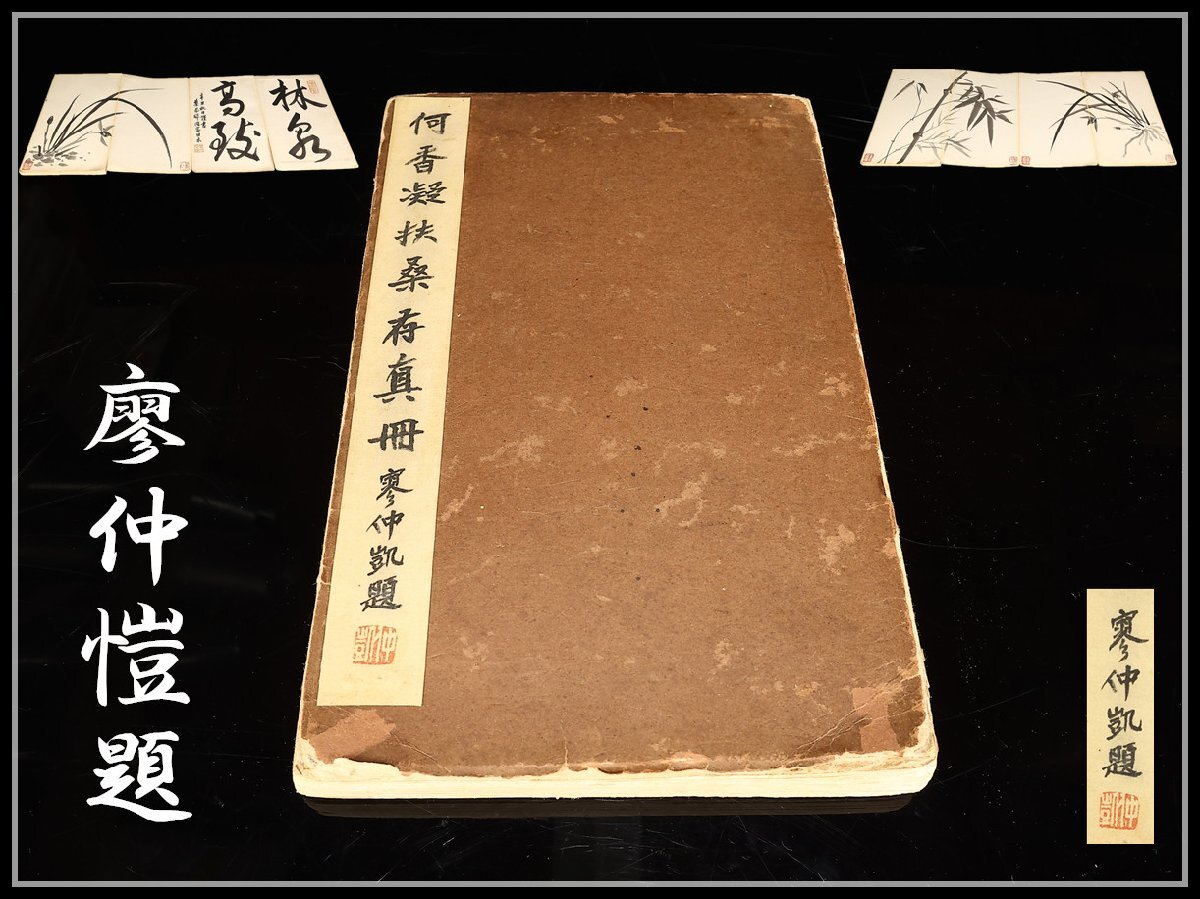 林泉
高致
何香凝扶桑存真冊
寥仲凱題
廖仲愷題
寥仲凱題
仲凱